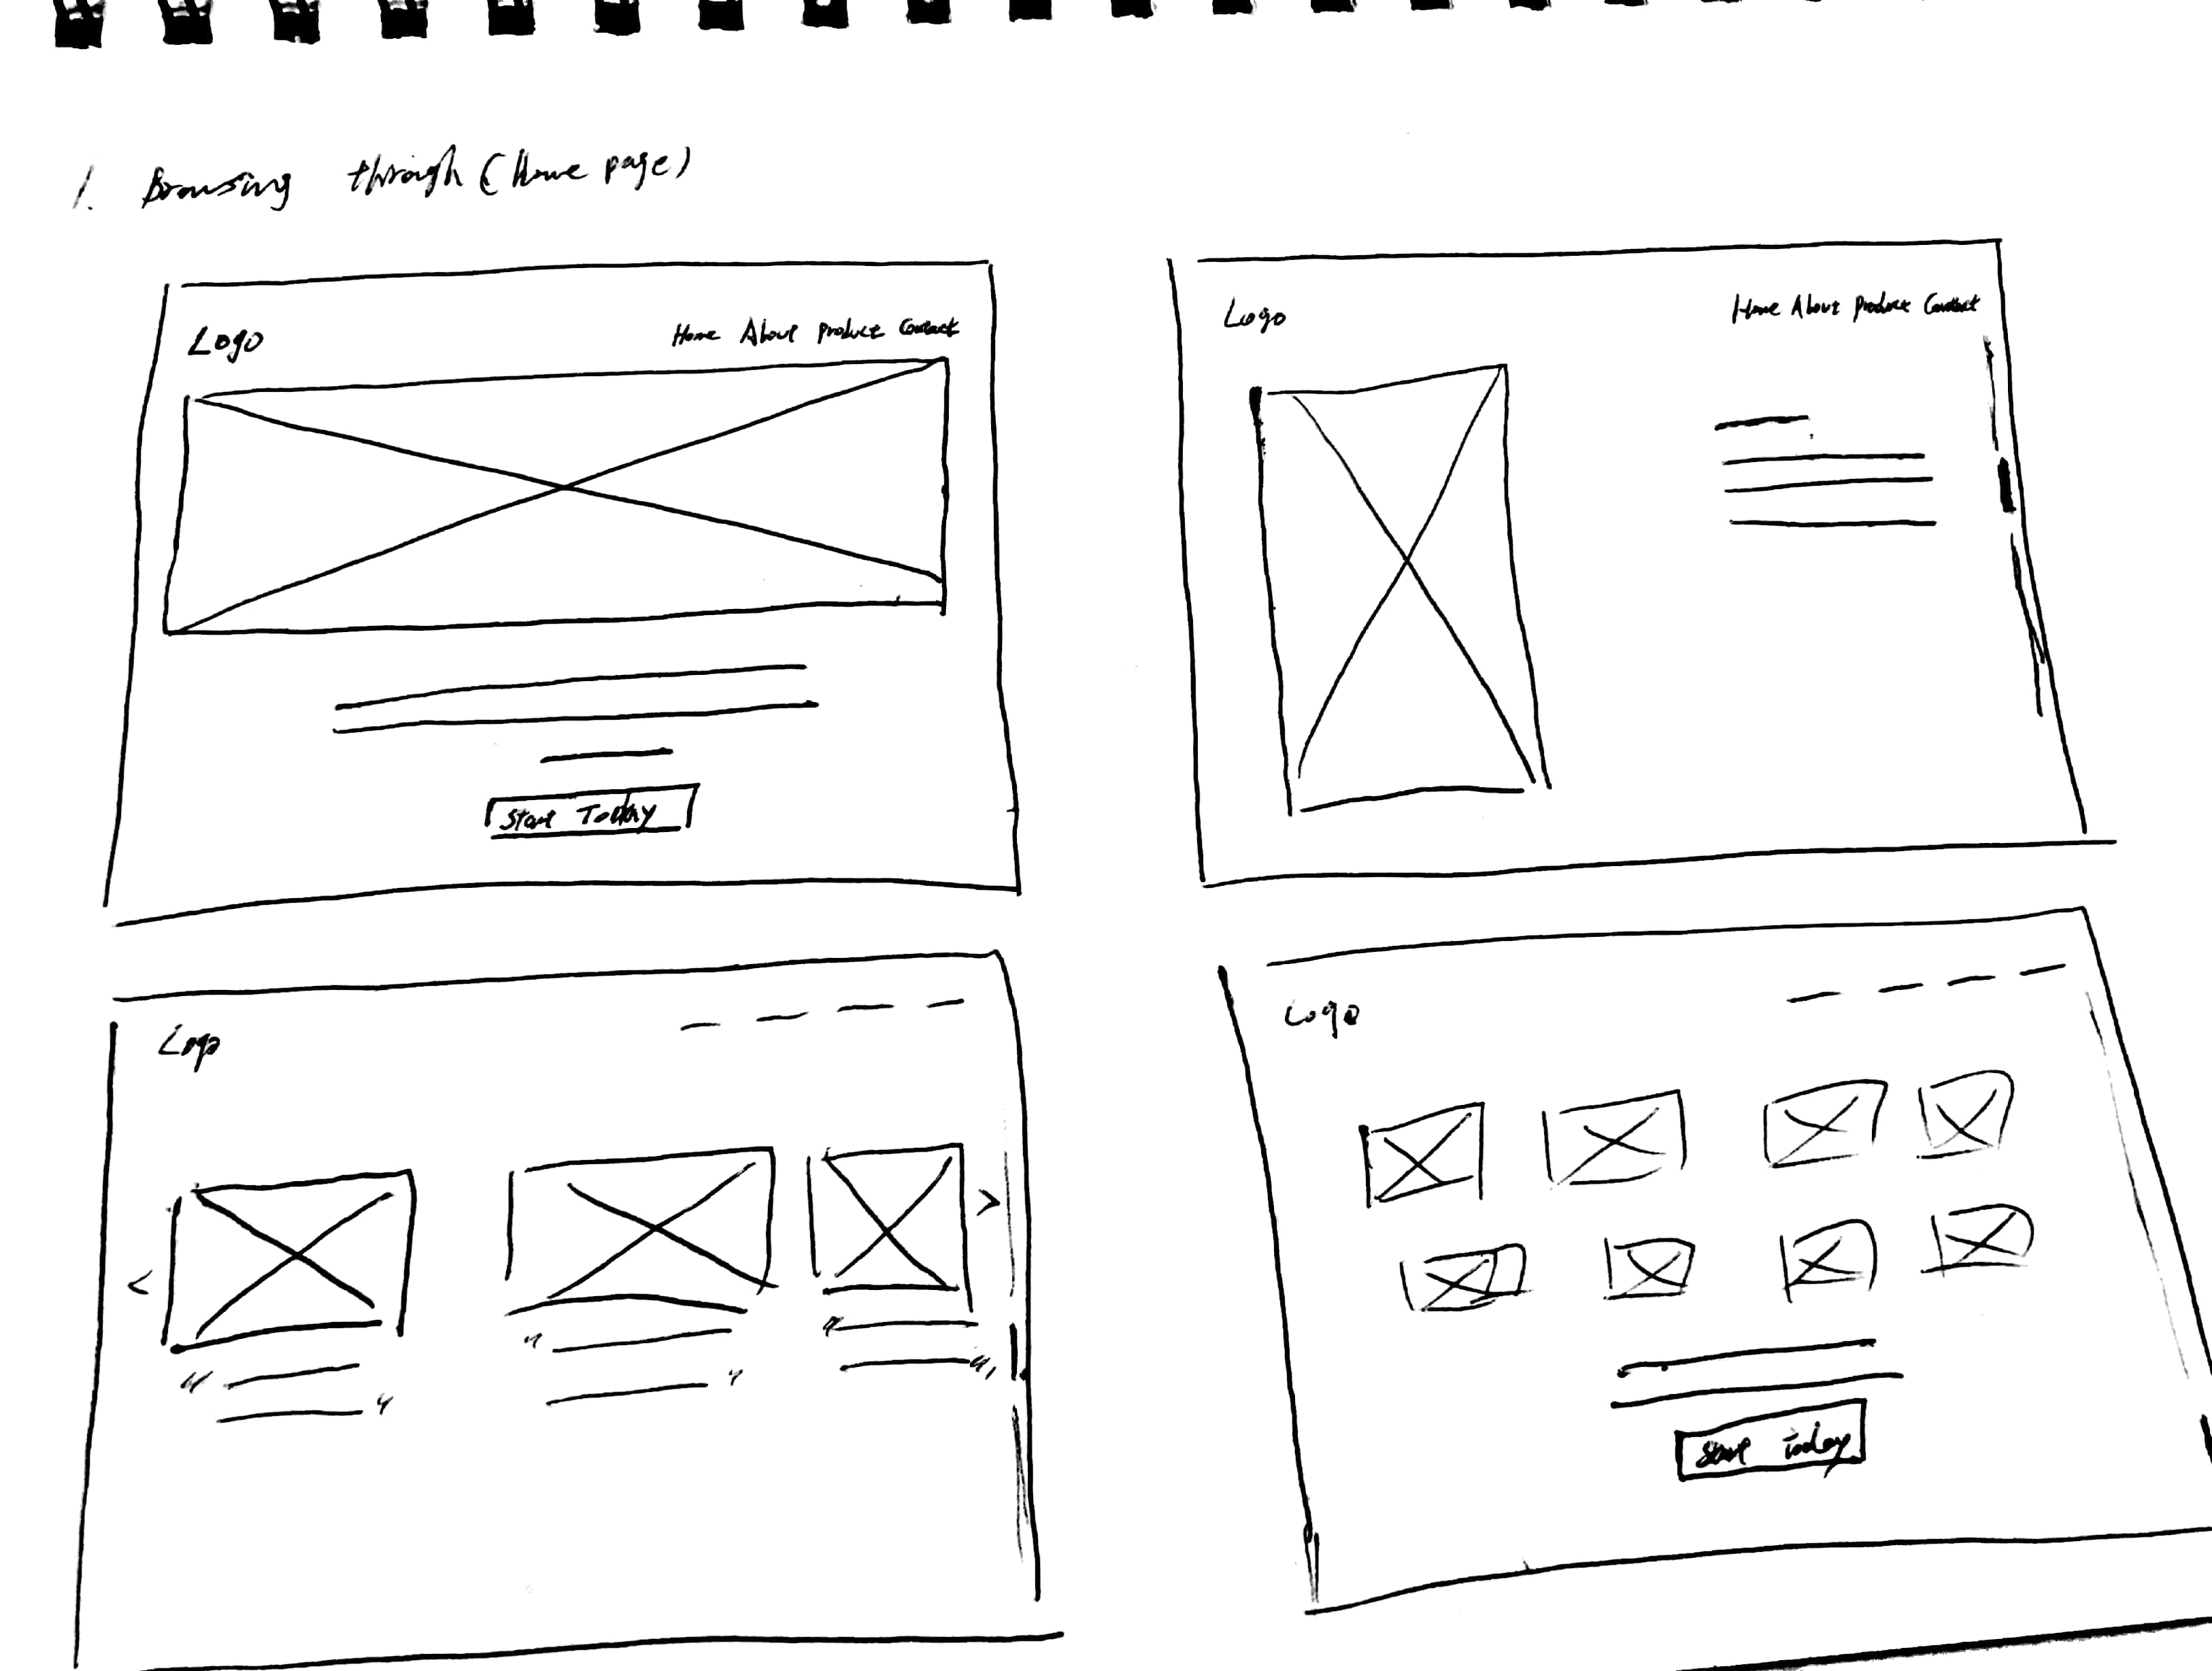 1. Browsing through (Home page)
Logo
Home About Product Contact
Start Today
Logo
Home About Product Contact
Logo
<
>
Logo
Start Today